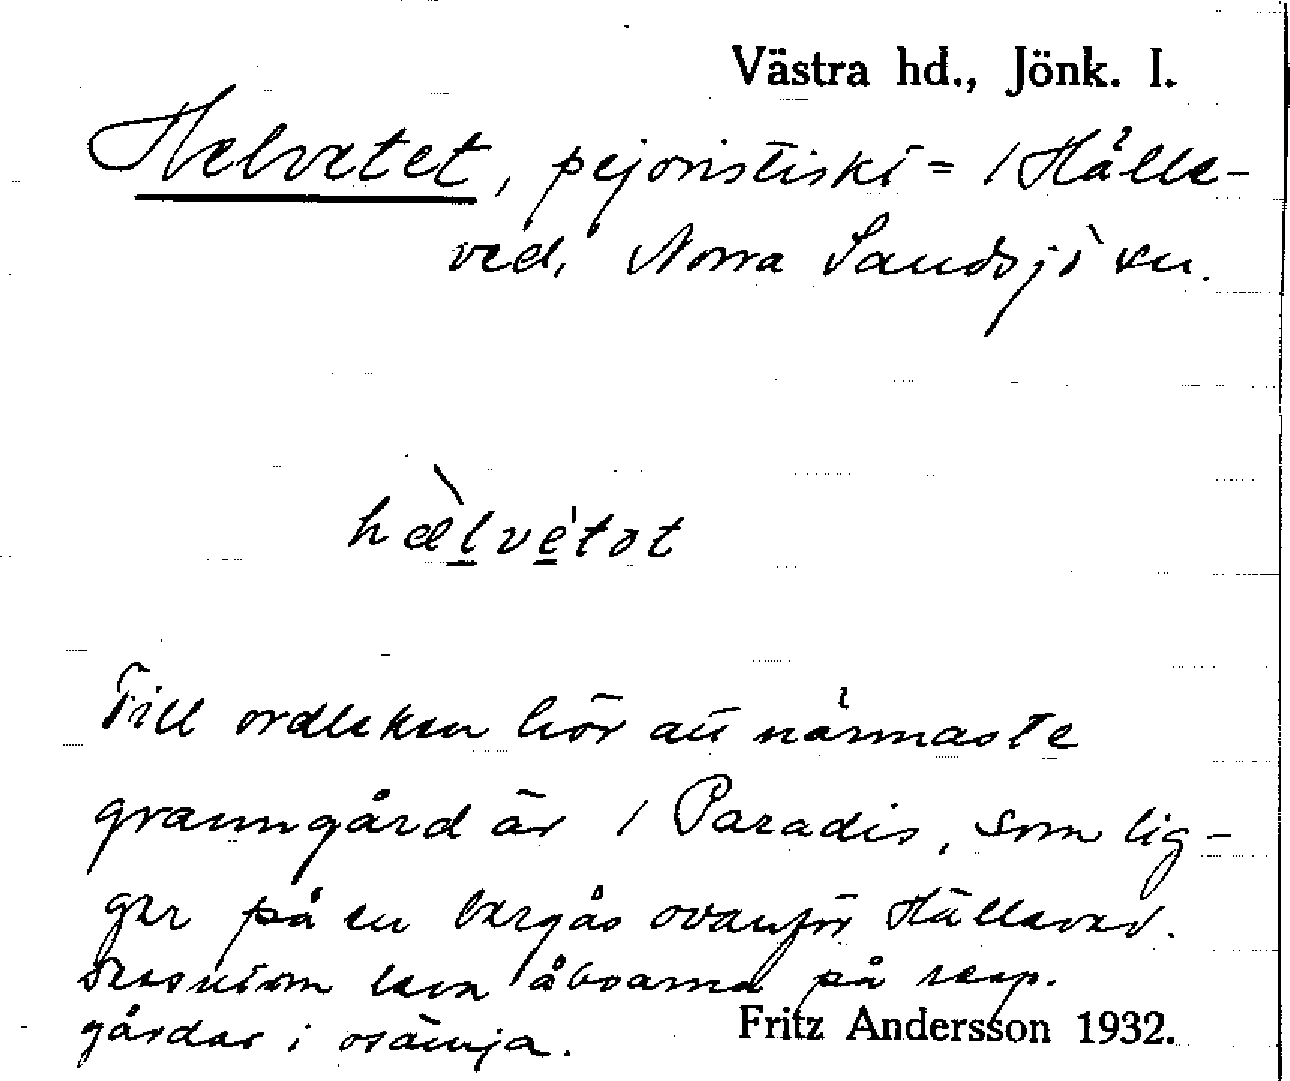 Västra hd., Jönk. l.
Helvetet, pejoristiskt = / Hälle-
ved, Norra Sandsjö sn.
hælvetət
Till ordleken hör att närmaste
granngård är / Paradis, som lig-
ger på en bergås ovanför Hälleved.
Dessutom leva åboarna på resp.
gårdar i osämja.
Fritz Andersson 1932.